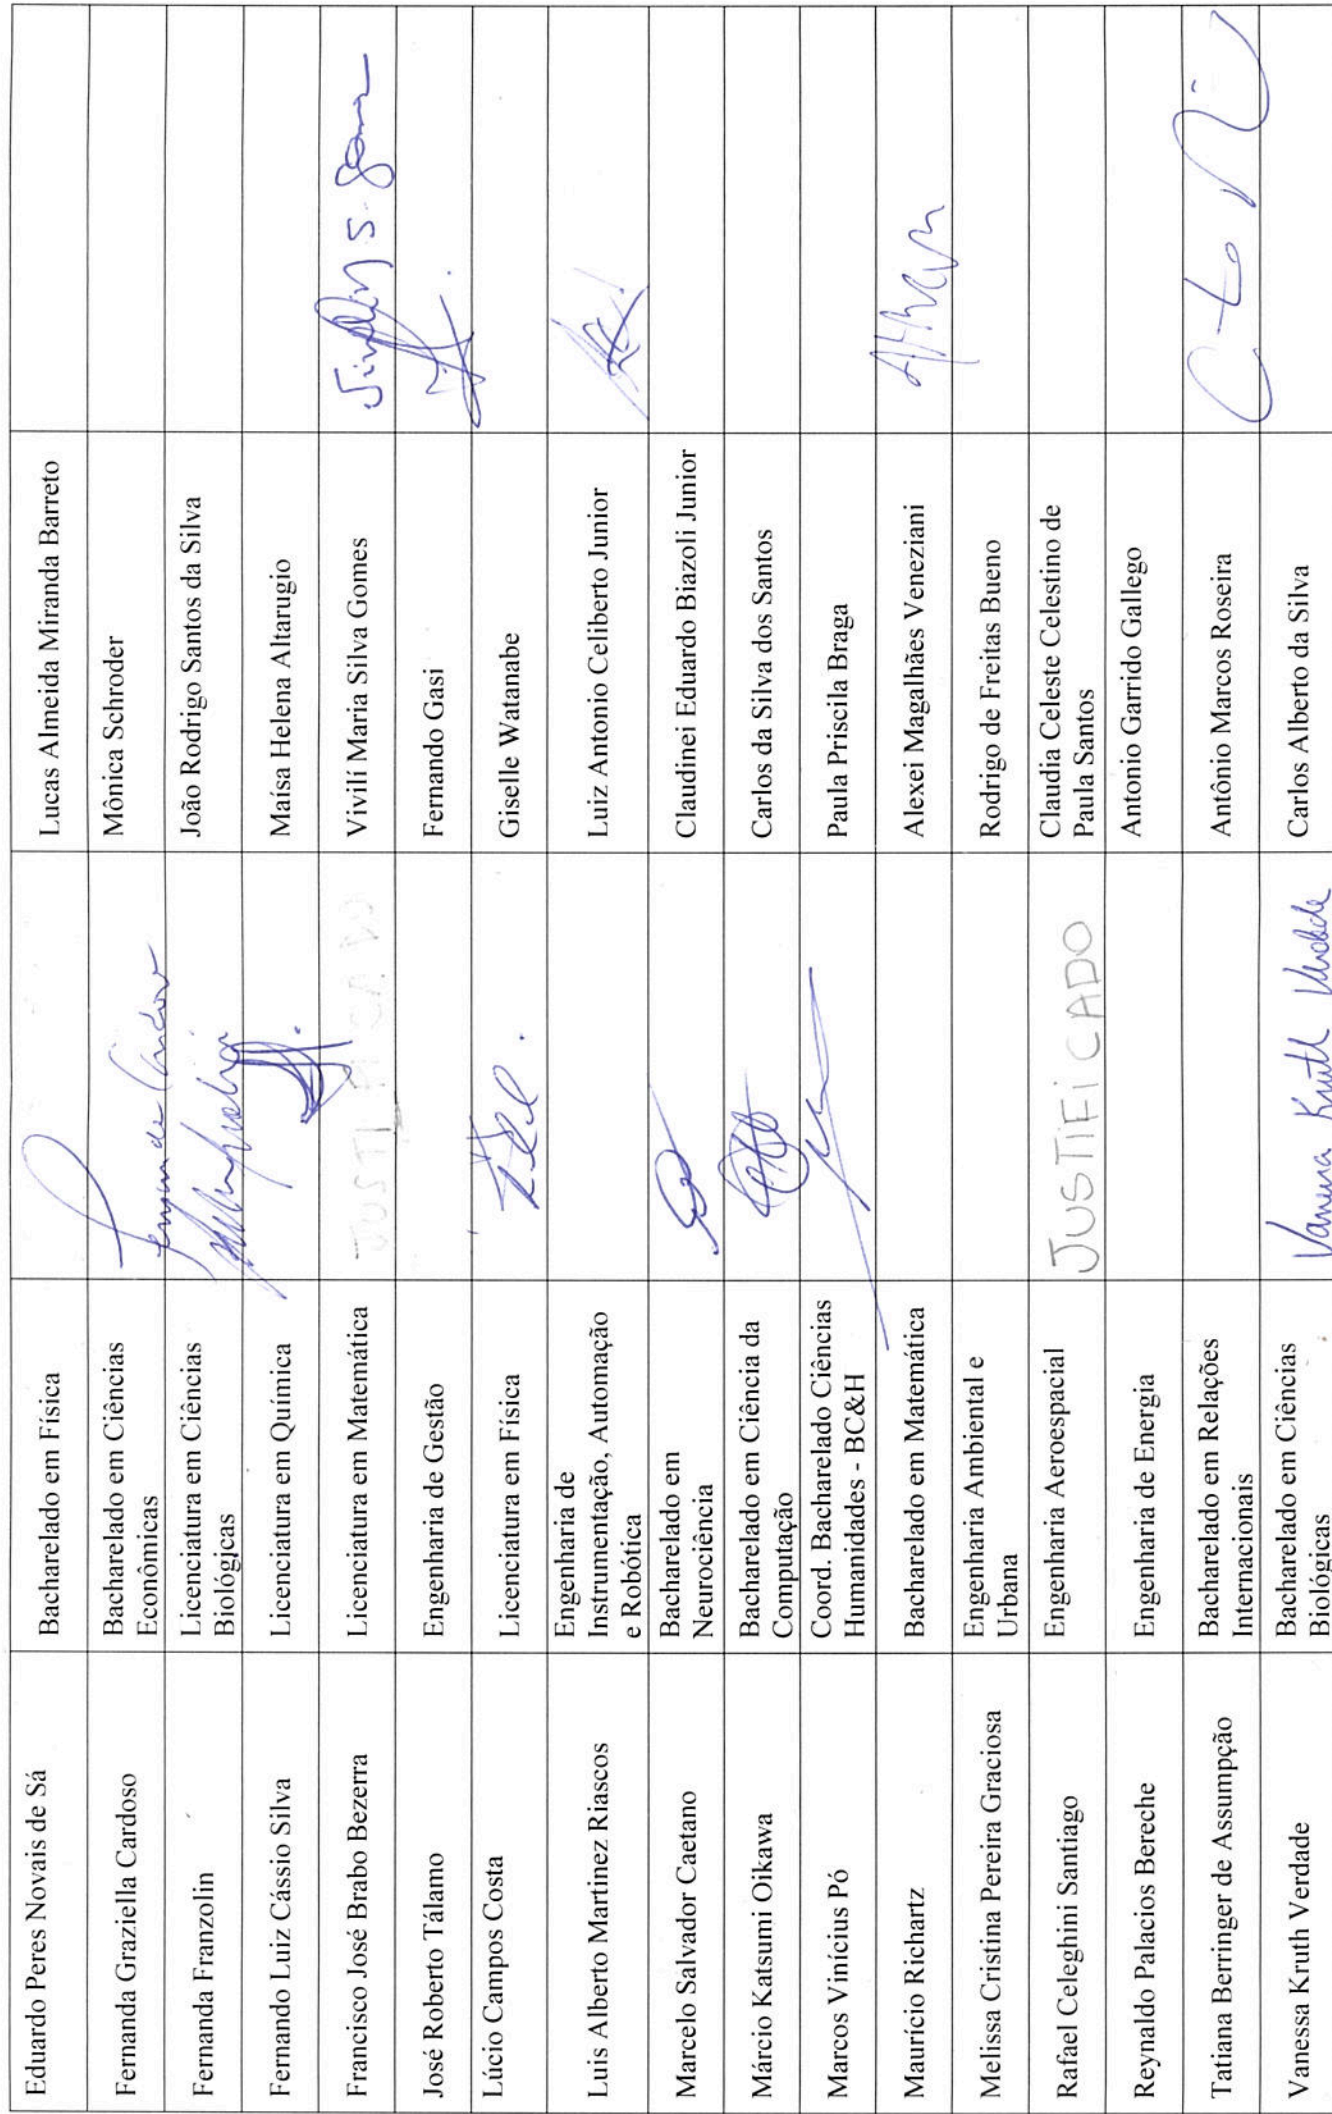 Eduardo Peres Novais de Sá
Bacharelado em Física
Lucas Almeida Miranda Barreto
Fernanda Graziella Cardoso
Bacharelado em Ciências
Econômicas
Mônica Schroder
Fernanda Franzolin
Licenciatura em Ciências
Biológicas
João Rodrigo Santos da Silva
Fernando Luiz Cássio Silva
Licenciatura em Química
Maísa Helena Altarugio
Francisco José Brabo Bezerra
Licenciatura em Matemática
JUSTIFICADO
Vivilí Maria Silva Gomes
José Roberto Tálamo
Engenharia de Gestão
Fernando Gasi
Lúcio Campos Costa
Licenciatura em Física
Giselle Watanabe
Luis Alberto Martinez Riascos
Engenharia de
Instrumentação, Automação
e Robótica
Luiz Antonio Celiberto Junior
Marcelo Salvador Caetano
Bacharelado em
Neurociência
Claudinei Eduardo Biazoli Junior
Márcio Katsumi Oikawa
Bacharelado em Ciência da
Computação
Carlos da Silva dos Santos
Marcos Vinícius Pó
Coord. Bacharelado Ciências
Humanidades - BC&H
Paula Priscila Braga
Maurício Richartz
Bacharelado em Matemática
Alexei Magalhães Veneziani
Melissa Cristina Pereira Graciosa
Engenharia Ambiental e
Urbana
Rodrigo de Freitas Bueno
Rafael Celeghini Santiago
Engenharia Aeroespacial
JUSTIFICADO
Claudia Celeste Celestino de
Paula Santos
Reynaldo Palacios Bereche
Engenharia de Energia
Antonio Garrido Gallego
Tatiana Berringer de Assumpção
Bacharelado em Relações
Internacionais
Antônio Marcos Roseira
Vanessa Kruth Verdade
Bacharelado em Ciências
Biológicas
Vanessa Kruth Verdade
Carlos Alberto da Silva